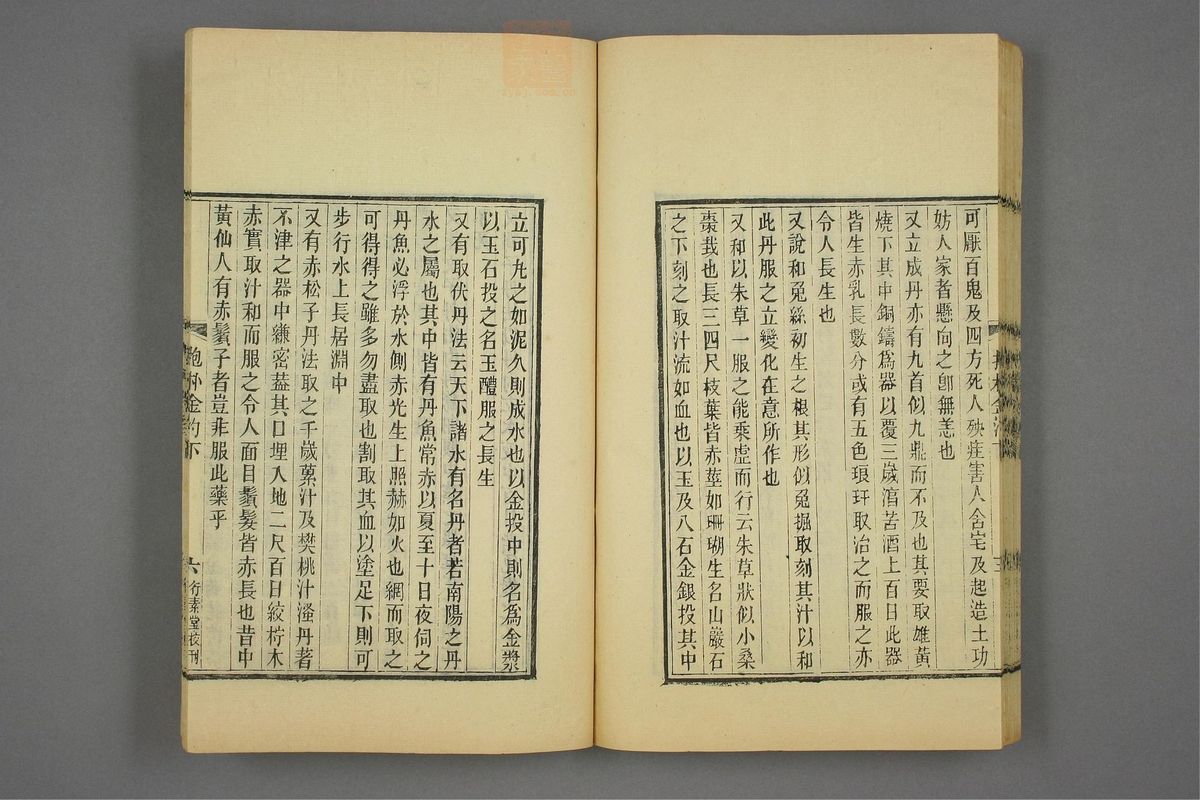 可厭百鬼及四方死人殃疰害人舍宅及起造土功
妨人家者懸向之卽無恙也
又立成丹亦有九首似九鼎而不及也其要取雄黃
燒下其中銅鑄爲器以覆三歲渻苦酒上百日此器
皆生赤乳長數分或有五色琅玕取治之而服之亦
令人長生也
又說和兔絲初生之根其形似兔掘取刻其汁以和
此丹服之立變化在意所作也
又和以朱草一服之能乘虛而行云朱草狀似小桑
棗栽也長三四尺枝葉皆赤莖如珊瑚生名山巖石
之下刻之取汁流如血也以玉及八石金銀投其中
立可丸之如泥久則成水也以金投中則名爲金漿
以玉石投之名玉醴服之長生
又有取伏丹法云天下諸水有名丹者若南陽之丹
水之屬也其中皆有丹魚常赤以夏至十日夜伺之
丹魚必浮於水側赤光生上照赫如火也網而取之
可得得之雖多勿盡取也割取其血以塗足下則可
步行水上長居淵中
又有赤松子丹法取之千歲虆汁及樊桃汁漨丹著
不津之器中練密葢其口埋入地二尺百日絞柠木
赤實取汁和而服之令人面目鬚髮皆赤長也昔中
黃仙人有赤鬚子者豈非服此藥乎
抱朴金汋下
六
行素堂校刊